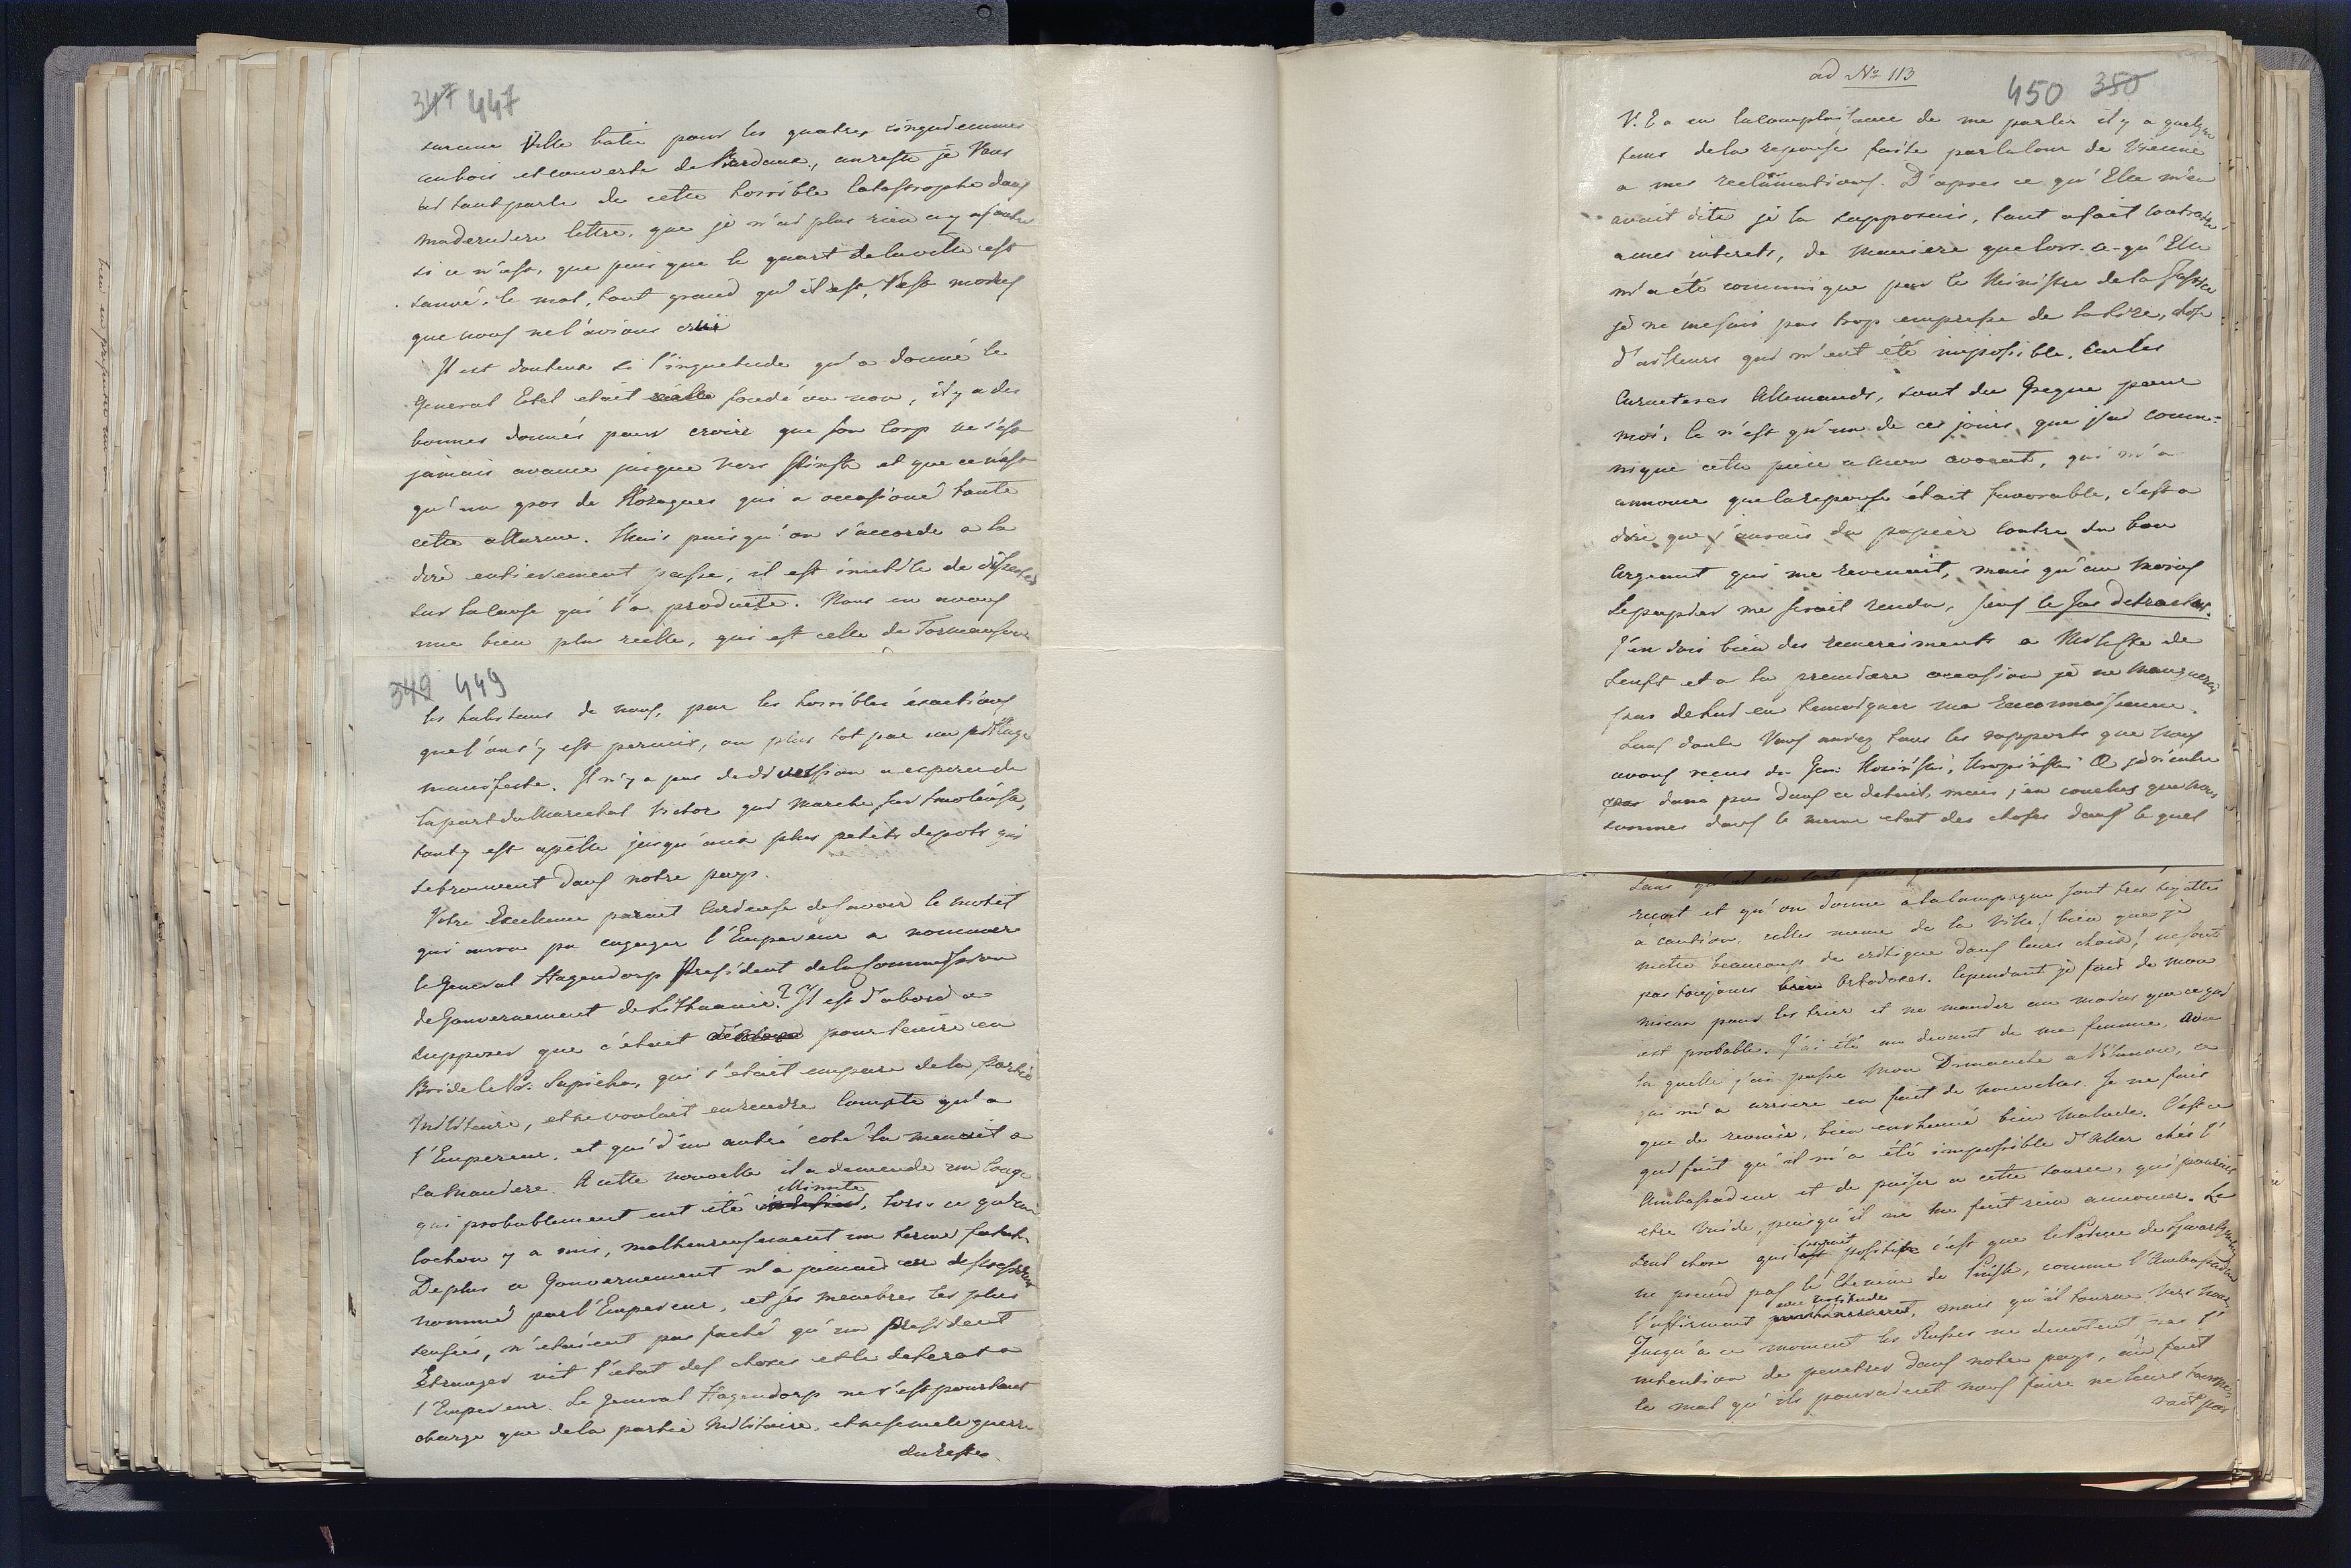 347 447
sur une Ville batie pour les quatres cinquiemmes
en bois et couverte de Bardeaux, au reste je Vous
ai tant parle de cette horrible Catastrophe dans
ma derniere lettre, que je n'ai plus rien a y ajouter
si ce n'est, que puis que le quart de la ville est
sauvé, le mal, tout grand qu'il est, l'est moins
que nous ne l'avions crue
Il est douteux si l'inquietude qu'a donné le
General Ertel etait fondé ou non, il y a des
bonnes donnés pour croire que son Corp ne s'est
jamais avancé jusque vers Pinsk et que ce n'est
qu'un gros de Kozaques qui a occasioné toute
cette allarme. Mais puis qu'on s'accorde a la
dire entierement passe, il est inutile de disserter
sur la cause qui l'a produite. Nous en avons
une bien plus reelle, qui est celle de Tormansow
349 449
les habitans de nous, par les horribles exactions
que l'on s'y est permis, ou plus tot par un pillage
manifeste. Il n'y a pas de diversion a esperer de
la part du Marechal Victor qui marche sur Smolensk,
tout y est apelle jusqu'aux plus petits depots qui
se trouvent dans notre pays.
Votre Excellence parait Curieuse de savoir le motif
qui aura pu engager l'Empereur a nommer
le General Hagendorp President de la Commission
de Gouvernement de Lithuanie? Il est d'abord a
supposer que c'etait pour tenir en
Bride le Pr. Sapieha, qui s'etait empare de la partie
Militaire, et ne voulait en rendre Compte qu'a
l'Empereur, et qui d'un autre coté la menait a
sa maniere. A cette nouvelle il a demende un Conge
qui probablement eut été illimité, lors-ce que
y a mis, malheureusement un terme fatal.
De plus ce Gouvernement n'a jamais eu de President
nommé par l'Empereur, et ses membres les plus
sensées, n'etaient pas faché qu'un President
Etranger vit l'etat des choses et le deferat a
l'Empereur. Le General Hagendorp ne s'est pourtant
charge que de la partie Militaire, et ne se mele guerre
du reste.
ad No 113
450 350
V. E a eu la complaisance de me parler il y a quelque
tems de la reponse faite par la Cour de Vienne
a mes reclamations. D'apres ce qu'Elle m'en
avait dite je la supposais, tout a fait contraire
a mes interets, de maniere que lors-ce-qu'Elle
m'a été communique par le Ministre de la Justice
je ne me suis pas trop empresse de la lire, chose
d'ailleurs qui m'eut été impossible, car les
Caracteres Allemands, sont du Greque pour
moi, ce n'est qu'un de ces jours que j'ai commu=
nique cette piece a mon avocat, qui m'a
annonce que la reponse était favorable, c'est a
dire que j'aurais du papier contre du bon
Argeant qui me revenait, mais qu'au moins
le papier me serait rendu, sans le Jus detractus.
J'en dois bien des remerciments a de
Senft et a la premiere occasion je ne manquerai
pas de lui en temoigner ma reconnaissance.
Sans doute Vous aurez tous les rapports que nous
avons recus du Gen: Kosinski, & je n'entre
donc pas dans ce detail, mais j'en conclus que nous
sommes dans le meme etat des choses dans le quel
recoit et qu'on donne a la Campagne sont tres sujettes
a caution, celles meme de la Ville! bien que je
mette beaucoup de critique dans leurs choix! ne sont
pas toujours bien Ortodoxes. Cependant je fais de mon
mieux pour les trier et ne mander au moins que ce qui
est probable. J'ai été au devant de ma femme, avec
la quelle j'ai passe mon Dimanche a Vilanow, ce
qui m'a arriere en fait de nouvelles. Je ne fais
que de revenir, bien enrhumé bien malade. C'est ce
qui fait qu'il m'a été impossible d'aller chés l'
Ambassadeur et de puiser a cette source, qui pourrait
etre vuide, puisqu'il ne me fait rien annoncer. La
seul chose qui parait positive c'est que le Prince de Swartzenberg
ne prend pas le Chemin de Pinsk, comme l'Ambassadeur
l'affirmait avec certitude, mais qu'il tourne vers nous
Jusqu'a ce moment les Russes ne denotent pas l'
intention de penetrer dans notre pays, au fait
le mal qu'ils pouraient nous faire ne leurs tourne-
rait pas